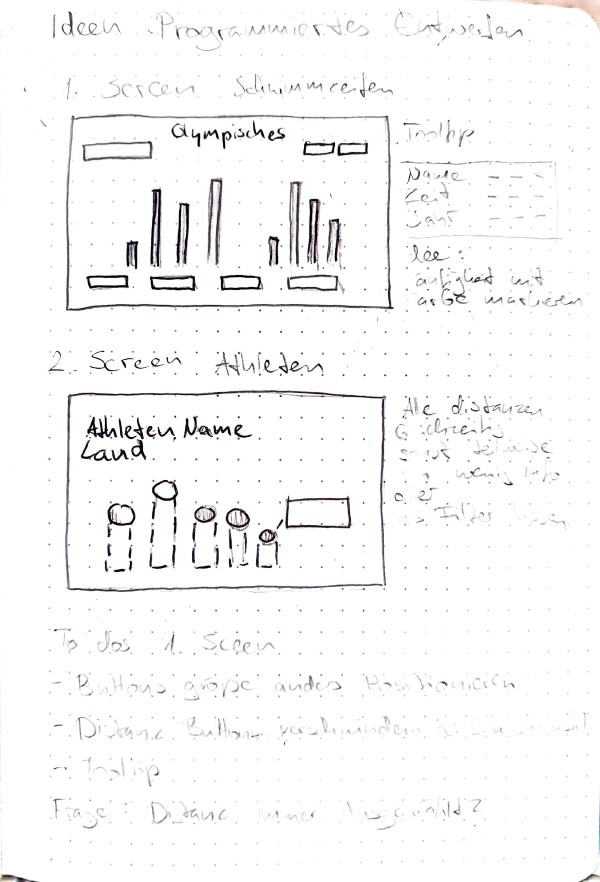 Ideen Programmiertes Entwerfen
1. Screen Schwimmzeiten
Olympisches
Tooltip
Name
Zeit
Jahr
Idee:
mit
markieren
2. Screen Athleten
Athleten Name
Land
Alle distanzen
wenig Info
Filter
To dos 1. Screen
- Buttons größe anders Positionieren
- Distanz Buttons verschwinden
- Tooltip
Frage: Distanz immer Ausgewählt?